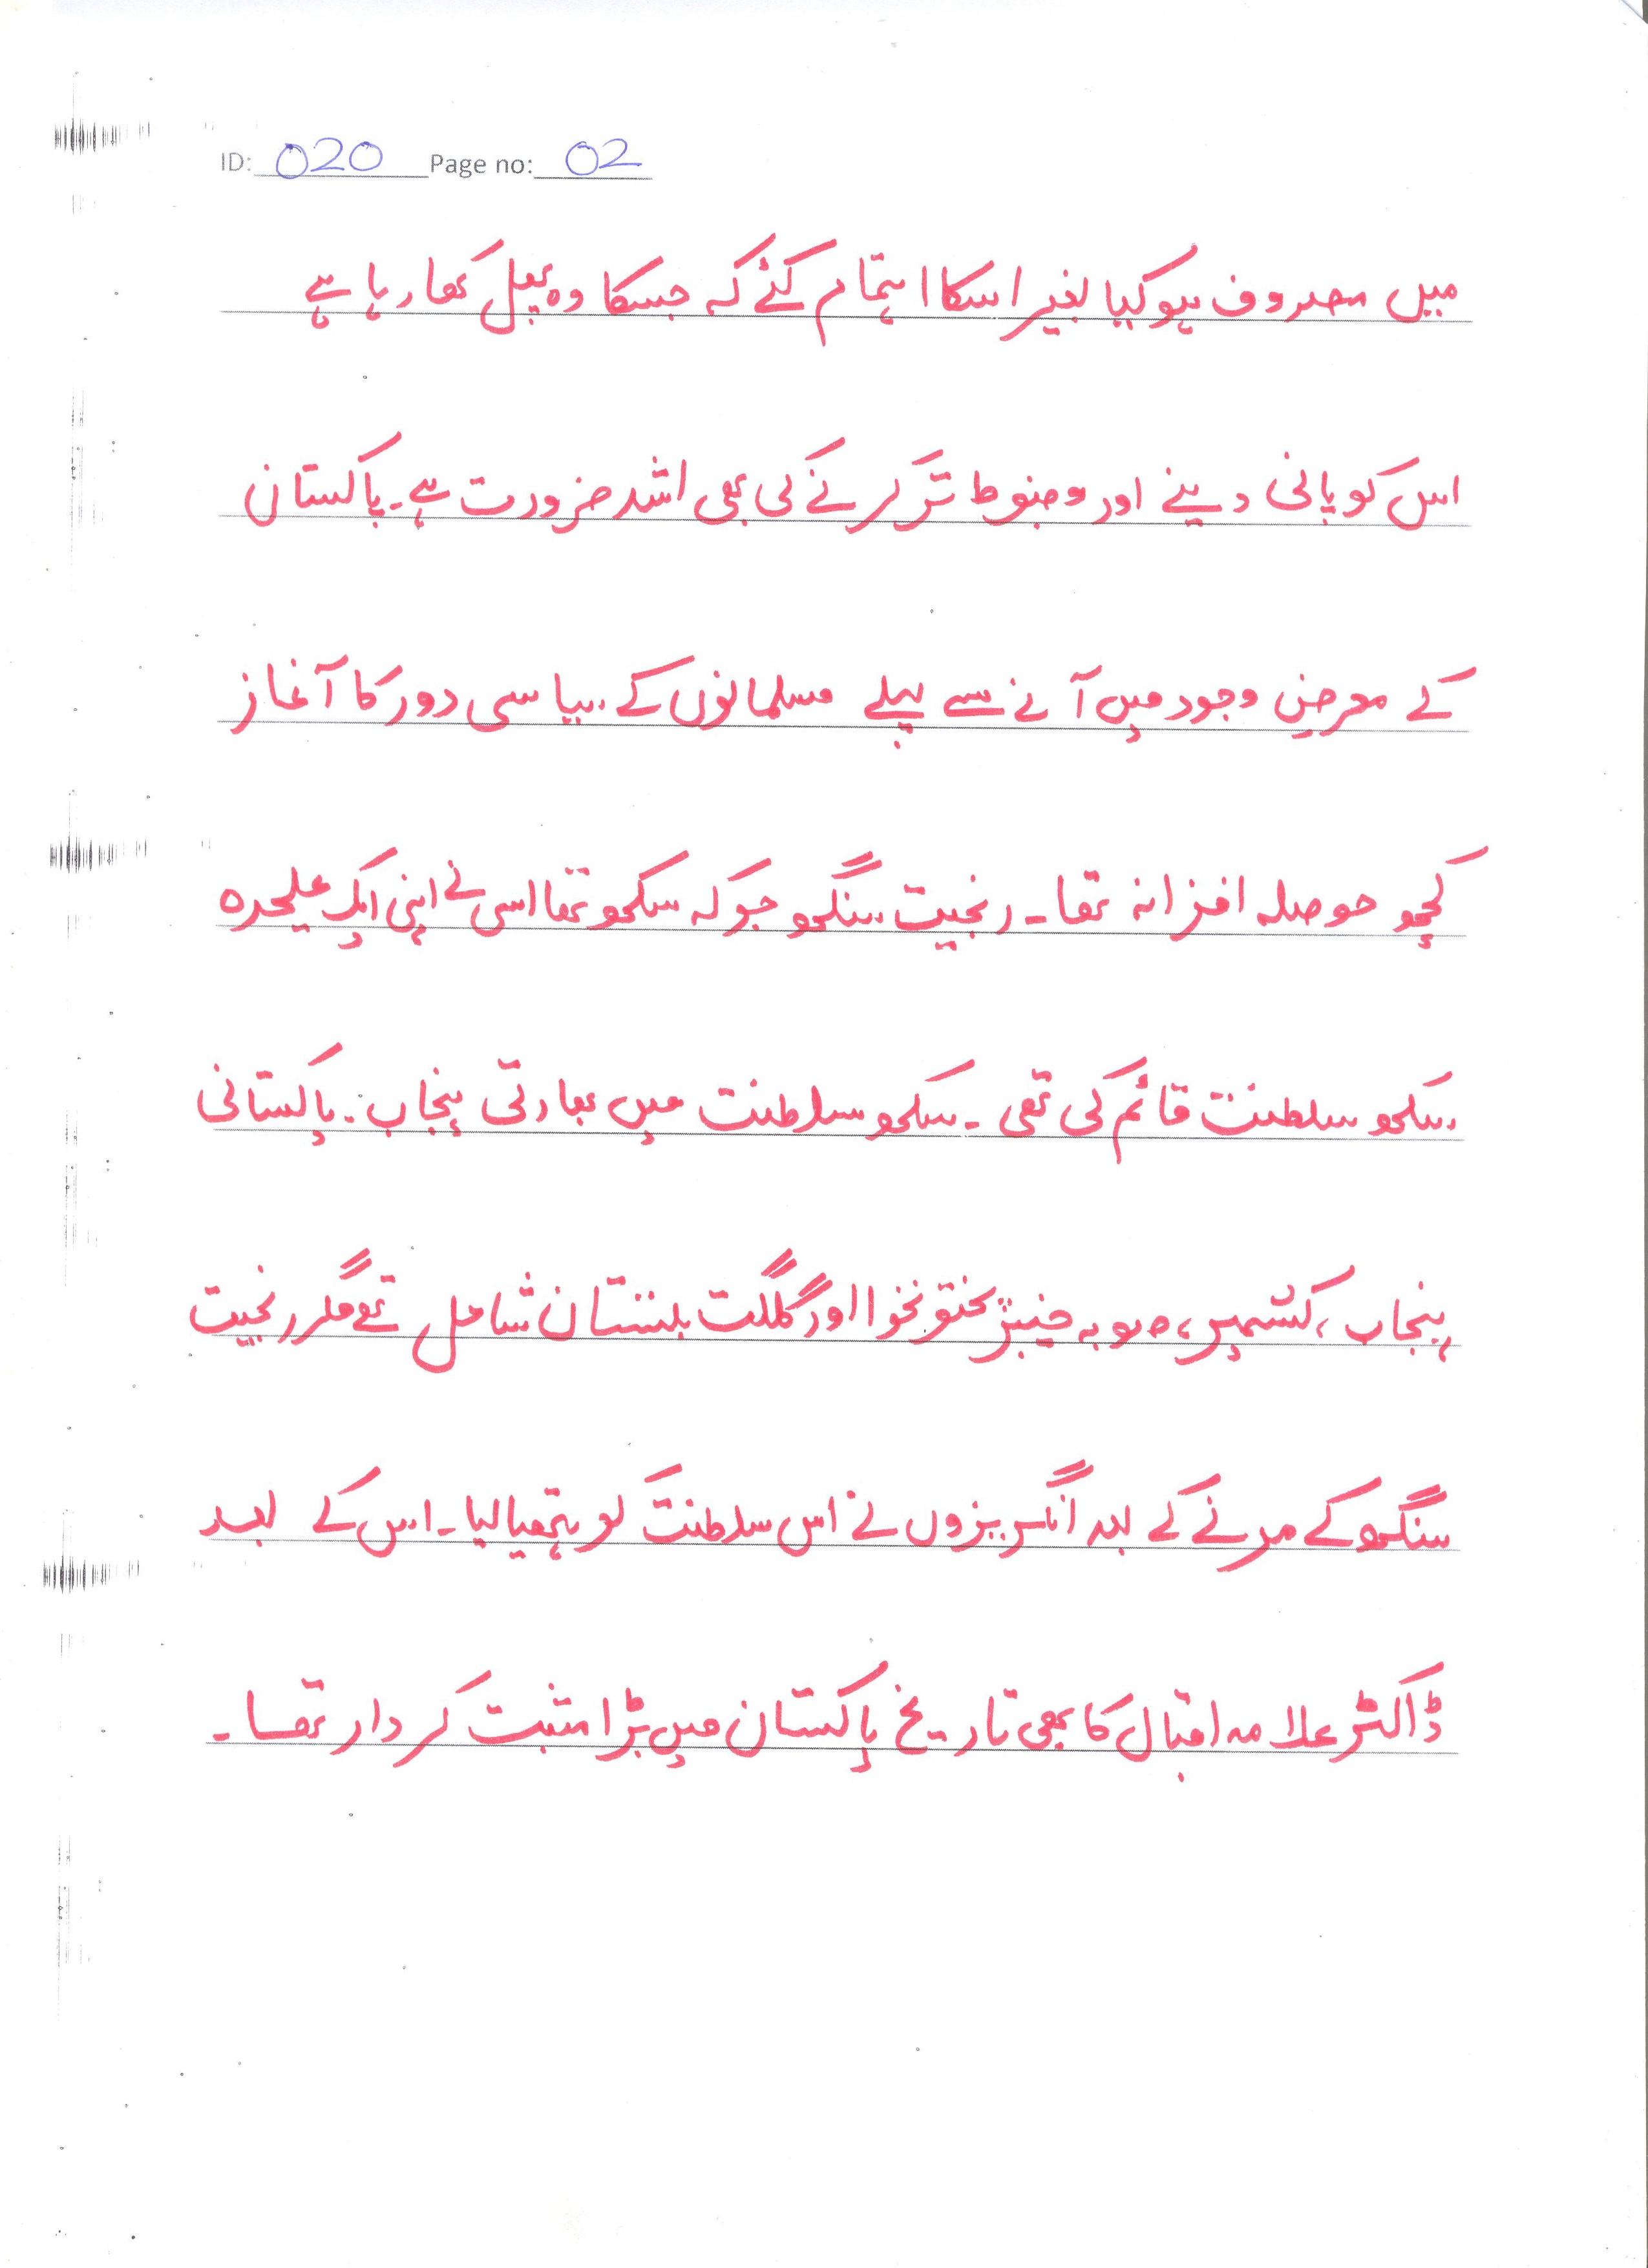 ID: 020 Page no: 02
میں مصروف ہوگیا بغیر اسکا اہتمام کئے کہ جسکا وہ پھل کھا رہا ہے
اس کو پانی دینے اور مضبوط تر کرنے کی بھی اشد ضرورت ہے۔ پاکستان
کے معرض وجود میں آنے سے پہلے مسلمانوں کے سیاسی دور کا آغاز
کچھ حوصلہ افزا نہ تھا۔ رنجیت سنگھ جو کہ سکھ تھا اسی نے اپنی ایک علیحدہ
سکھ سلطنت قائم کی تھی۔ سکھ سلطنت میں بھارتی پنجاب، پاکستانی
پنجاب، کشمیر، صوبہ خیبر پختونخوا اور گلگت بلتستان شامل تھے مگر رنجیت
سنگھ کے مرنے کے بعد انگریزوں نے اس سلطنت کو ہتھیا لیا۔ اس کے بعد
ڈاکٹر علامہ اقبال کا بھی تاریخ پاکستان میں بڑا مثبت کردار تھا۔